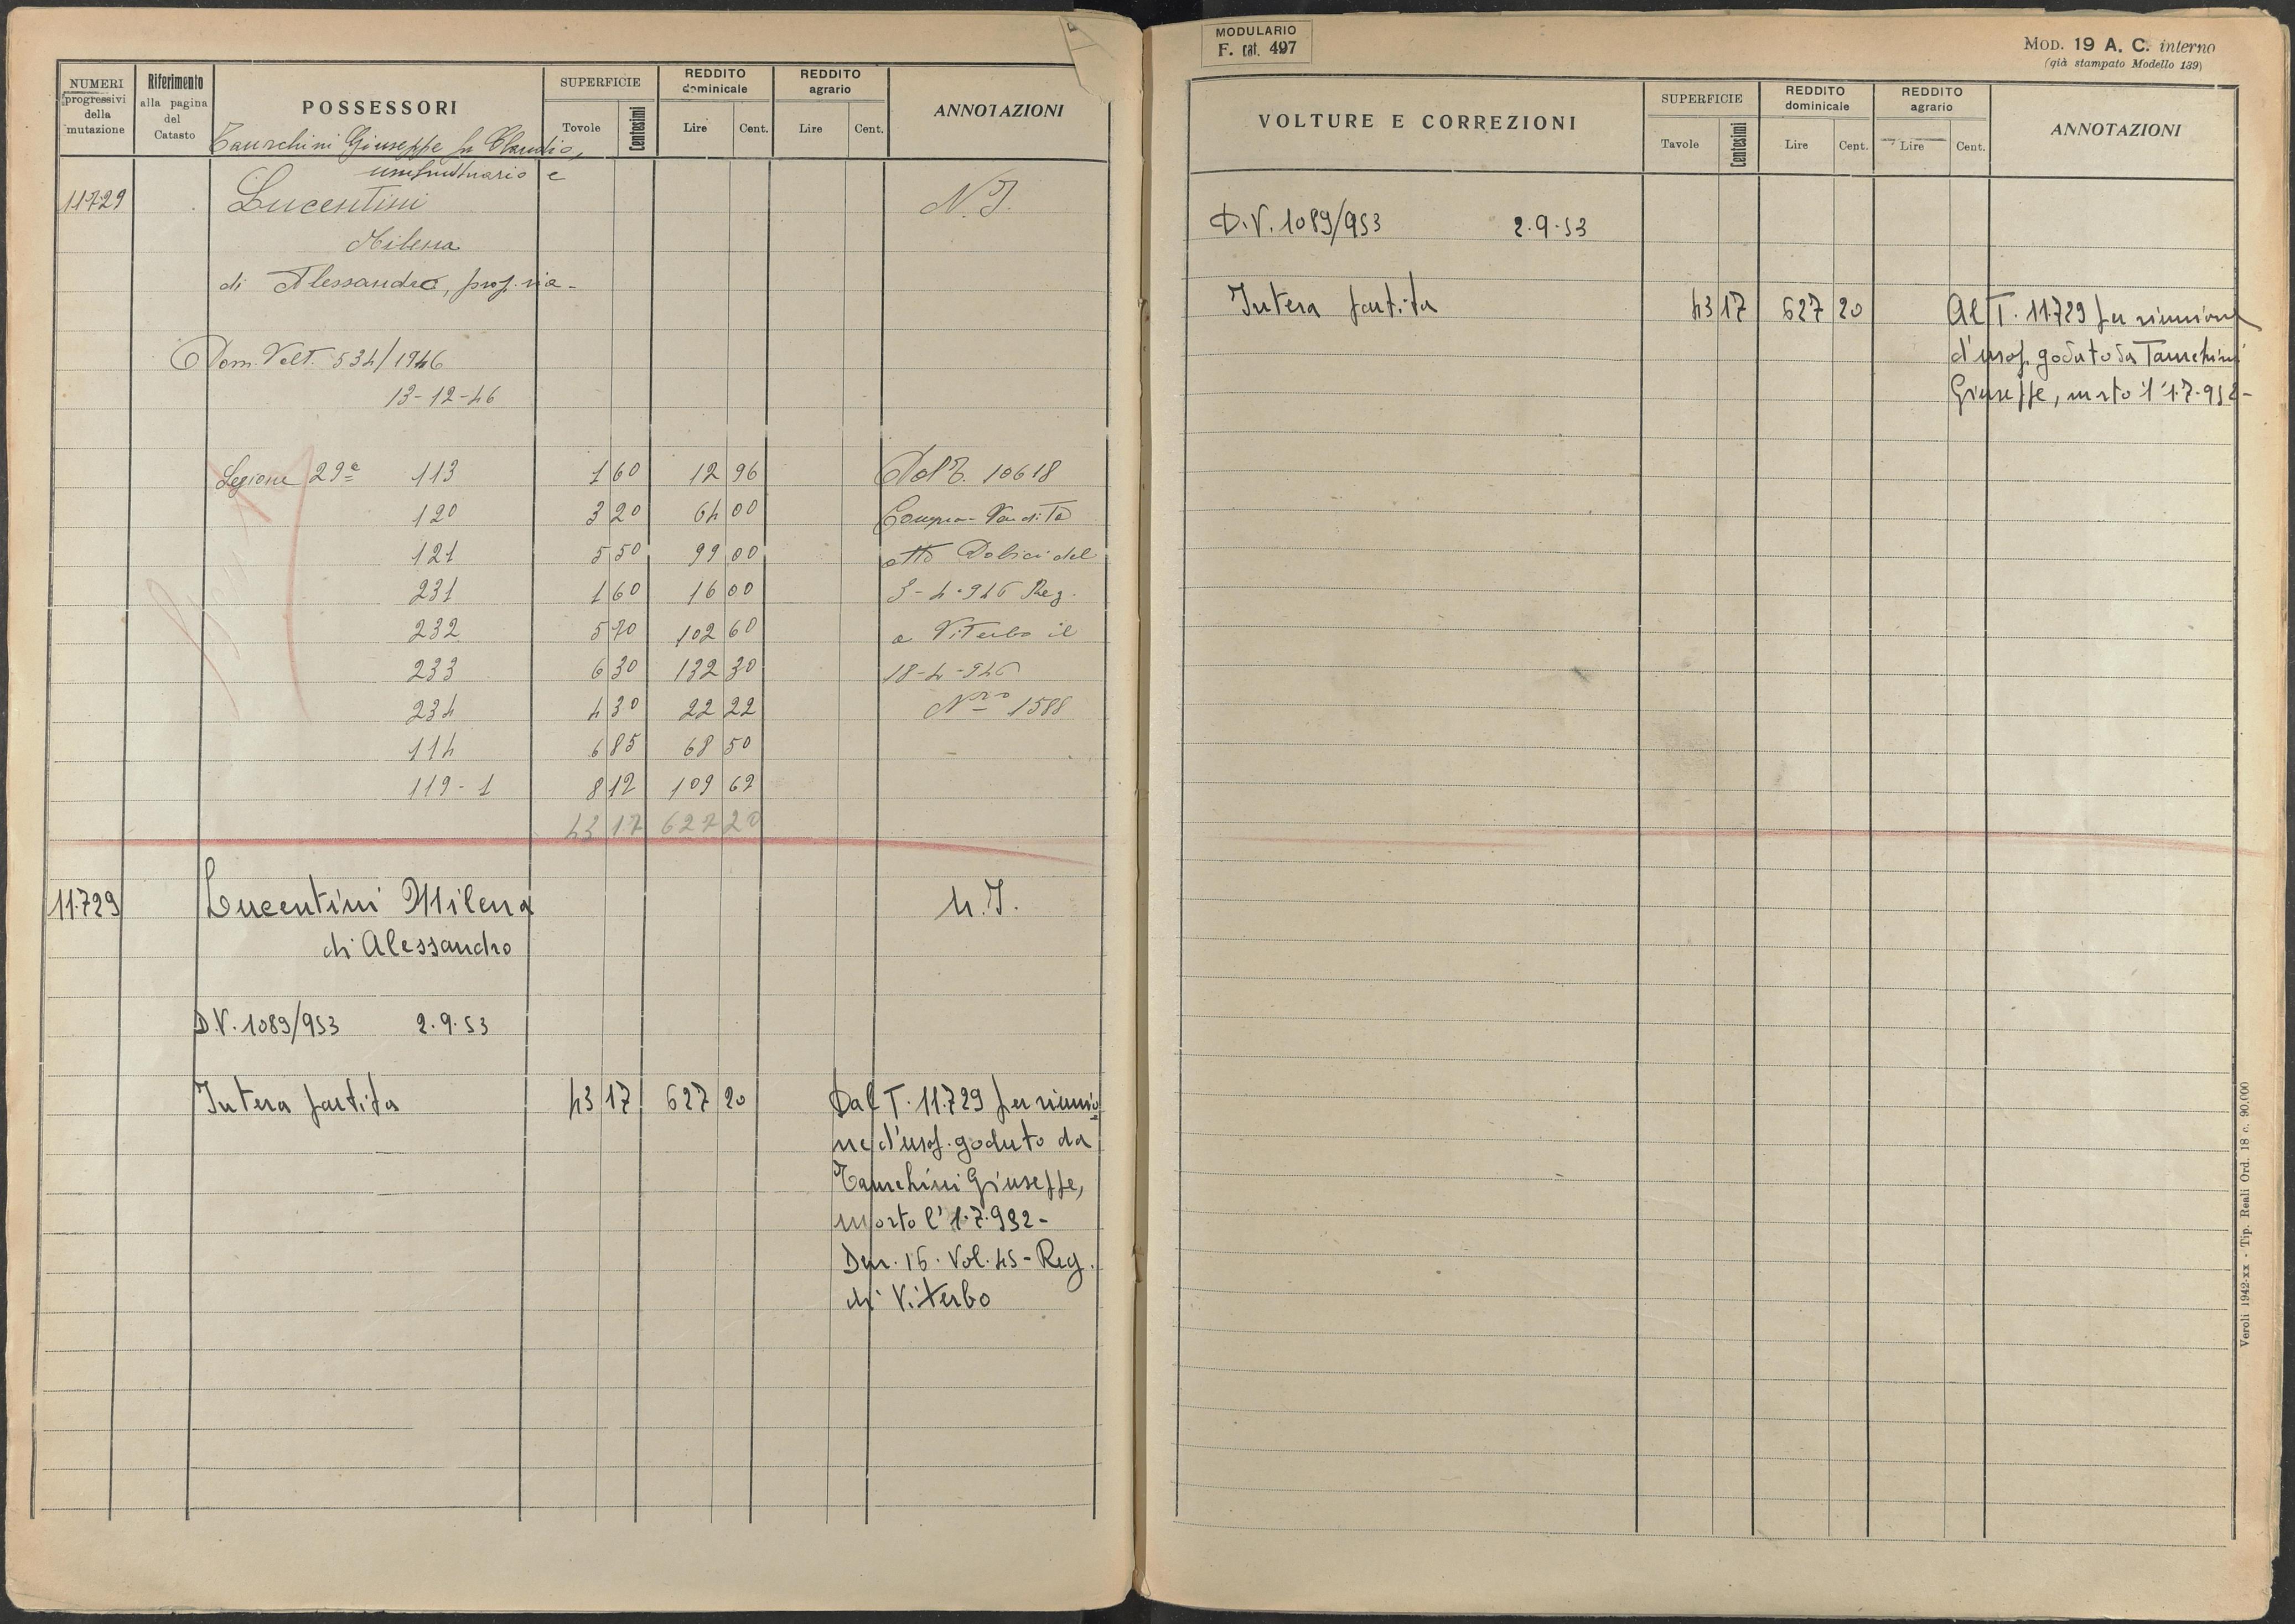 NUMERI progressivi della mutazione
Riferimento alla pagina del Catasto
POSSESSORI
SUPERFICIE
Tovole
Centesimi
REDDITO dominicale
Lire
Cent.
REDDITO agrario
Lire
Cent.
ANNOTAZIONI
Taurchini Giuseppe fu Claudio,
usufruttuario e
11729 Lucentini N.I.
Milena
di Alessandro, prop.ria-
Dom. Volt. 534/1946
13-12-46
Sezione 29ª 113 1 60 12 96 Dal T. 10618
120 3 20 64 00 Compra-Vendita
121 5 50 99 00 atto del
231 1 60 16 00 3-4-946 Reg.
232 5 70 102 60 a Viterbo il
233 6 30 132 30 18-4-946
234 4 30 22 22 Nro 1588
114 6 85 68 50
119-1 8 12 109 62
43 17 627 20
11.729 Lucentini Milena N.I.
di Alessandro
D.V. 1089/953 2.9.53
Intera partita 43 17 627 20 Dal T. 11.729 per riunio
ne d'usuf. goduto da
Taurchini Giuseppe,
morto l'1.7.952-
Den. 16. Vol. 45- Reg.
di Viterbo
MODULARIO
F. cat. 497
MOD. 19 A. C. interno
(già stampato Modello 139)
VOLTURE E CORREZIONI
SUPERFICIE
Tavole
Centesimi
REDDITO dominicale
Lire
Cent.
REDDITO agrario
Lire
Cent.
ANNOTAZIONI
D.V. 1089/953 2.9.53
Intera partita 43 17 627 20 Al T. 11.729 per riunione
d'usuf. goduto da Taurchini
Giuseppe, morto l'1.7.952-
Veroli 1942-xx - Tip. Reali Ord. 18 c. 90.000